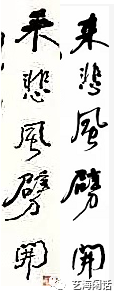 来悲風劈開
来悲風劈開
艺海闲话